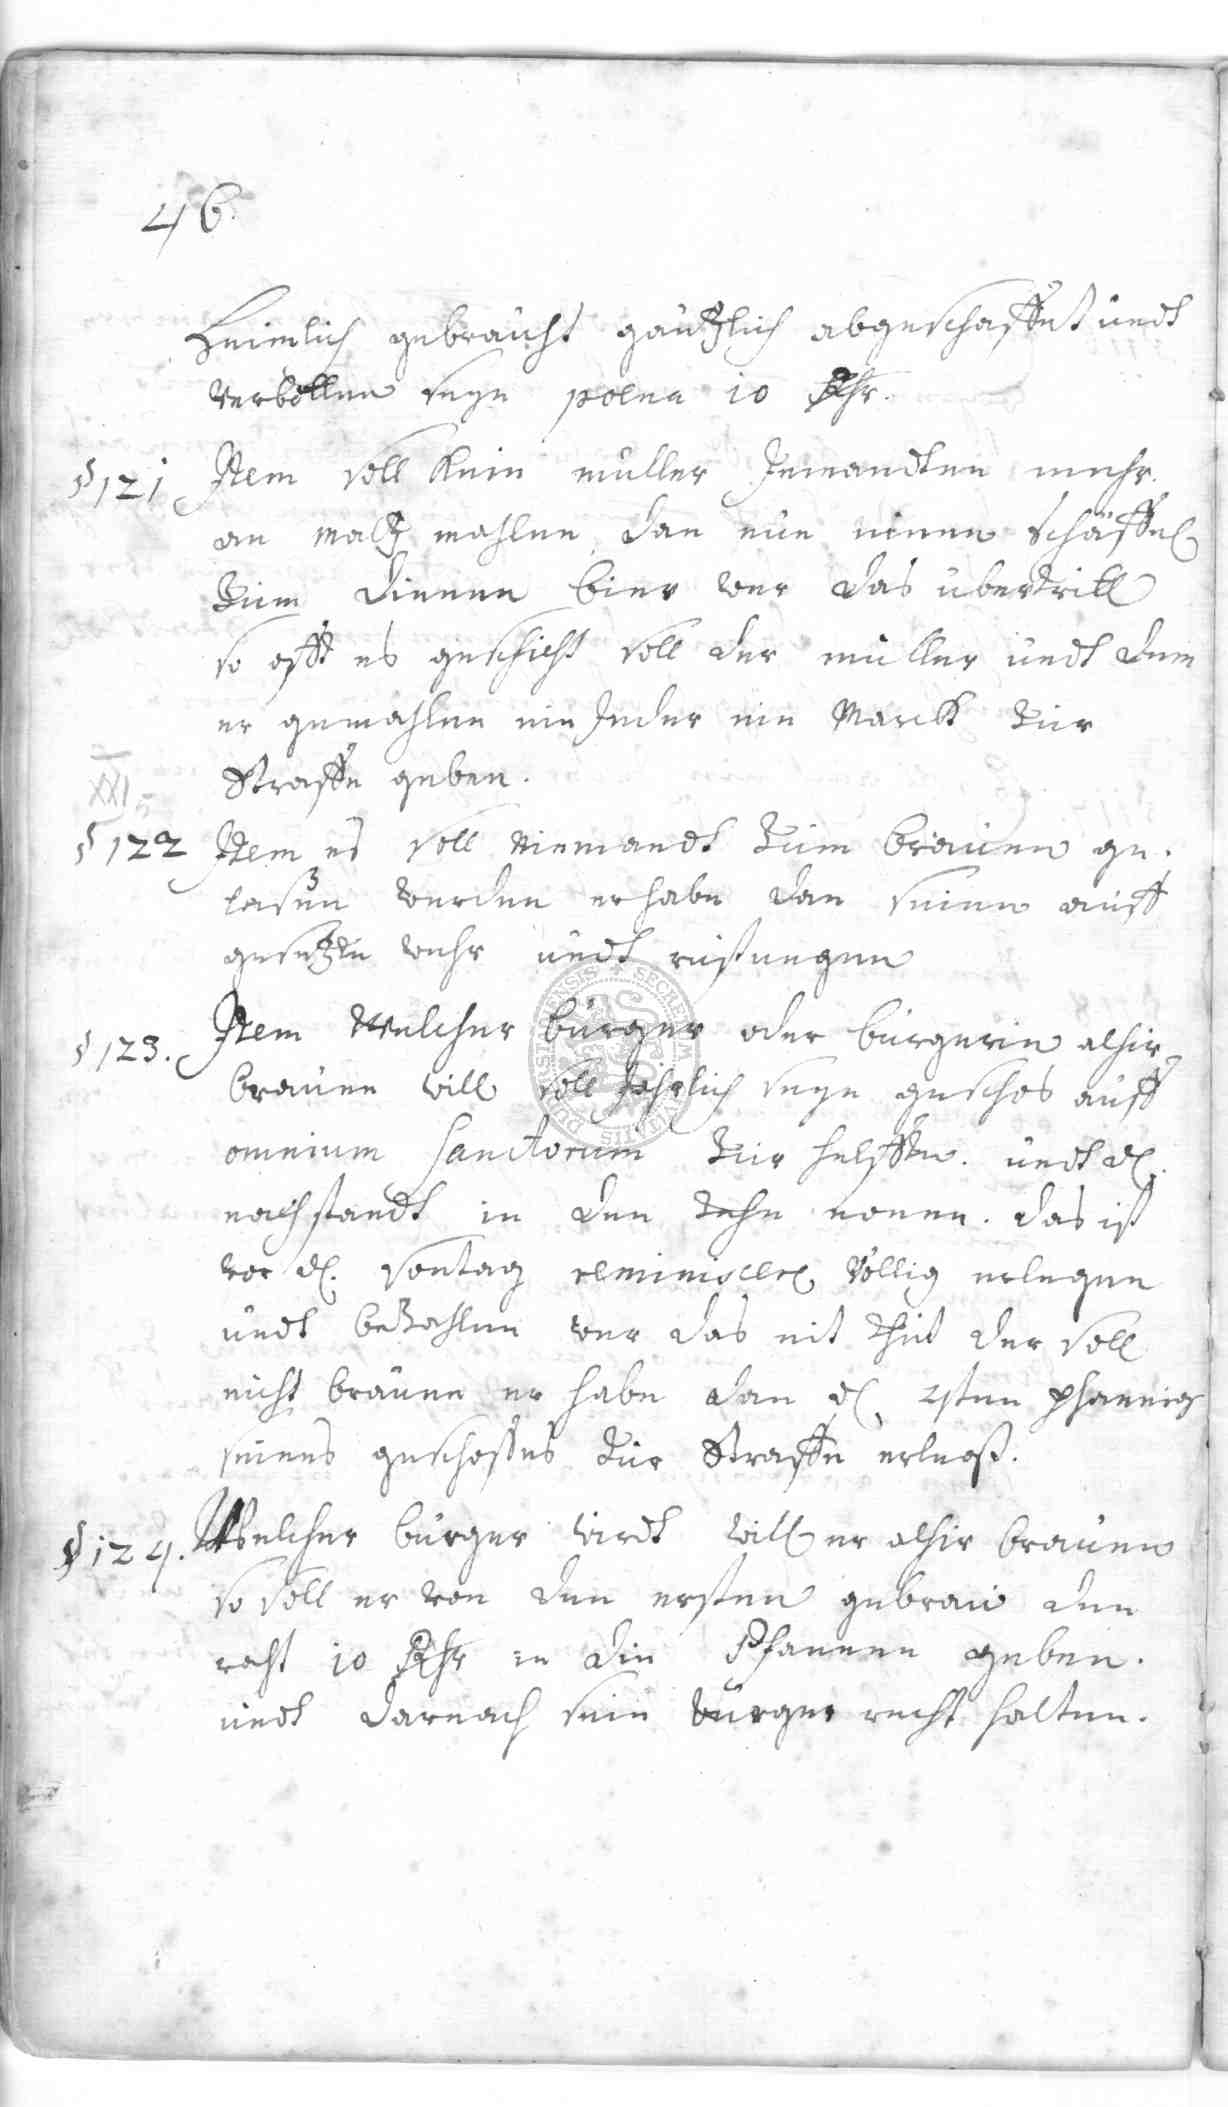 46.
Heimlich gebraucht gäntzlich abgeschaffet undt
verbotten seyn poena 10 Rthr.
§ 121 Item soll kein muller Jemandten mehr
an maltz mahlen dan nur einen schäffel
zum dinnen bier wer das ubertritt
so offt es geschicht soll der müller undt dem
er gemahlen ein Jeder ein Marck zur
Straffe geben.
XXI
§ 122 Item es soll niemandt zum brauen ge-
lasen werden er habe dan seine auff
gesetzte wehr undt rustungen
§ 123. Item Welcher bürger oder bürgerin alhir
brauen will soll Jährlich seyn geschos auff
omnium Sanctorum zur helffte. undt d.
nachstandt in den zehn nonen. das ist
vor d. sontag reminiscere völlig erlegen
undt bezahlen wer das nit thut der soll
nicht brauen er habe dan d. 4ten phennig
seines geschosses zur Straffe erlegt.
§ 124. Welcher bürger wirdt will er alhir brauen
so soll er von den ersten gebrau den
raht 10 Rthr in die Pfannen geben.
undt darnach sein bürger recht halten.